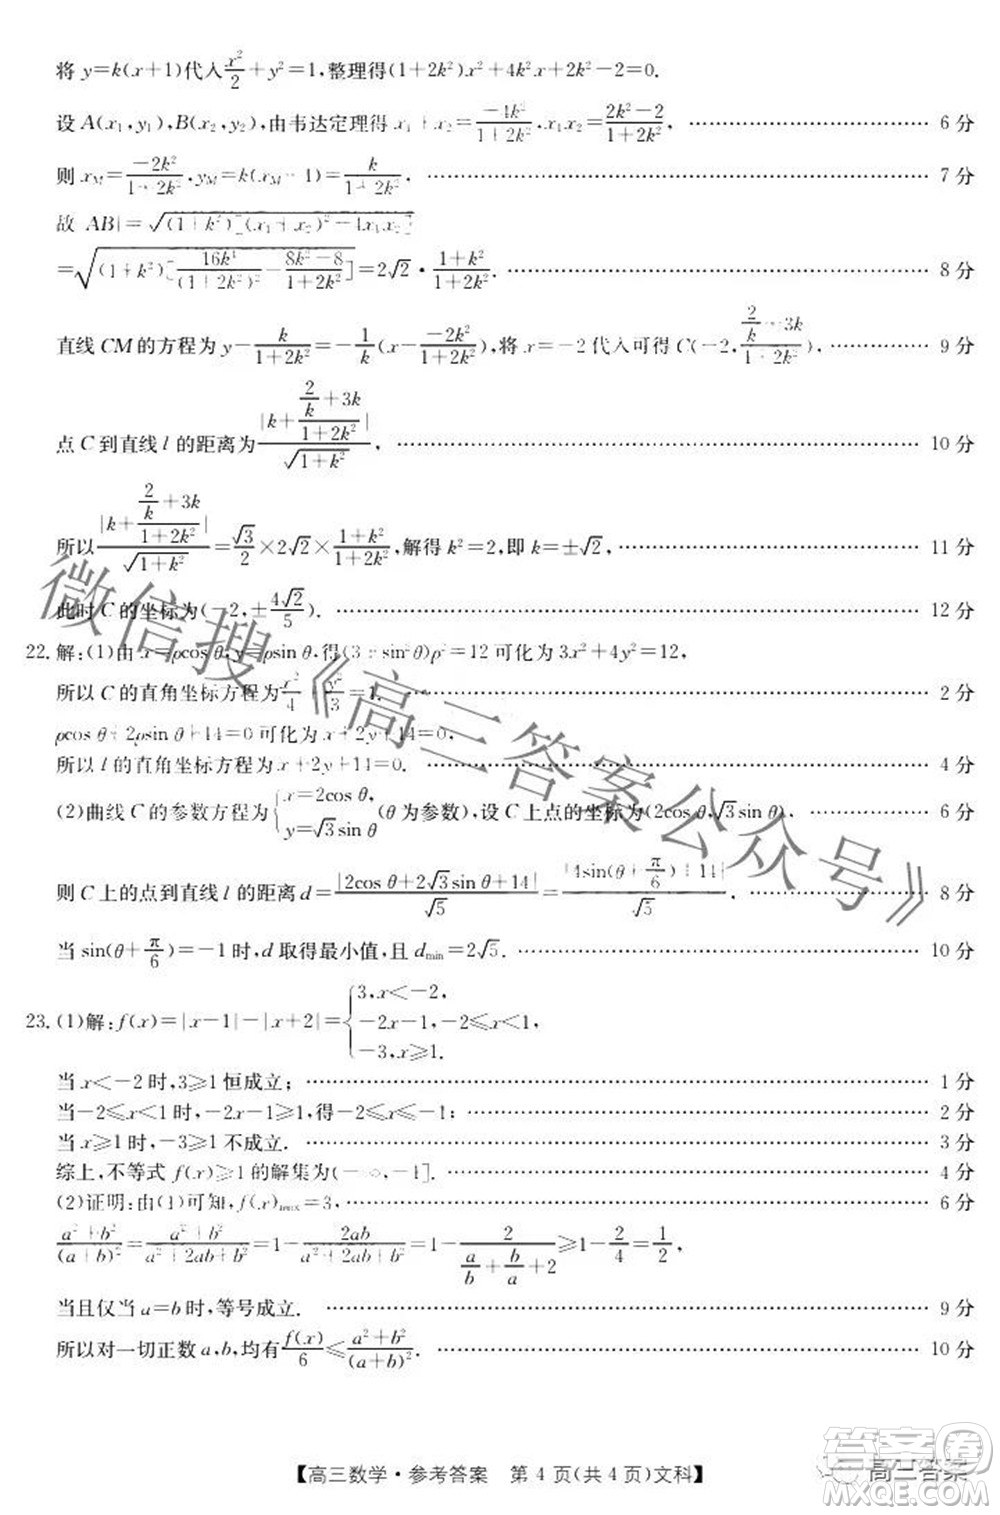 将 y=k(x+1)代入x²/2+y²=1,整理得(1+2k²)x²+4k²x+2k²-2=0.
设 A(x₁,y₁),B(x₂,y₂),由韦达定理得 x₁+x₂=-4k²/(1+2k²),x₁x₂=(2k²-2)/(1+2k²), …… 6 分
则 x_M=-2k²/(1+2k²),y_M=k(x_M+1)=k/(1+2k²), …… 7 分
故|AB|=√((1+k²)[(x₁+x₂)²-4x₁x₂])
=√((1+k²)[16k⁴/(1+2k²)²-(8k²-8)/(1+2k²)])=2√2·(1+k²)/(1+2k²). …… 8 分
直线 CM 的方程为 y-k/(1+2k²)=-1/k(x-(-2k²)/(1+2k²)),将 x=-2 代入可得 C(-2,(2/k+3k)/(1+2k²)). …… 9 分
点 C 到直线 l 的距离为|k+(2/k+3k)/(1+2k²)|/√(1+k²), …… 10 分
所以|k+(2/k+3k)/(1+2k²)|/√(1+k²)=√3/2×2√2×(1+k²)/(1+2k²),解得 k²=2,即 k=±√2, …… 11 分
此时 C 的坐标为(-2,±4√2/5). …… 12 分
22. 解:(1)由 x=ρcos θ,y=ρsin θ,得(3+sin²θ)ρ²=12 可化为 3x²+4y²=12,
所以 C 的直角坐标方程为x²/4+y²/3=1. …… 2 分
ρcos θ+2ρsin θ+14=0 可化为 x+2y+14=0,
所以 l 的直角坐标方程为 x+2y+14=0. …… 4 分
(2)曲线 C 的参数方程为{x=2cos θ, y=√3sin θ (θ 为参数),设 C 上点的坐标为(2cos θ,√3sin θ), …… 6 分
则 C 上的点到直线 l 的距离 d=|2cos θ+2√3sin θ+14|/√5=|4sin(θ+π/6)+14|/√5. …… 8 分
当 sin(θ+π/6)=-1 时,d 取得最小值,且 d_min=2√5. …… 10 分
23. (1)解:f(x)=|x-1|-|x+2|={3,x<-2, -2x-1,-2≤x<1, -3,x≥1.
当 x<-2 时,3≥1 恒成立; …… 1 分
当-2≤x<1 时,-2x-1≥1,得-2≤x≤-1; …… 2 分
当 x≥1 时,-3≥1 不成立. …… 3 分
综上,不等式 f(x)≥1 的解集为(-∞,-1]. …… 4 分
(2)证明:由(1)可知,f(x)_max=3, …… 6 分
(a²+b²)/(a+b)²=(a²+b²)/(a²+2ab+b²)=1-2ab/(a²+2ab+b²)=1-2/(a/b+b/a+2)≥1-2/4=1/2,
当且仅当 a=b 时,等号成立. …… 9 分
所以对一切正数 a,b,均有f(x)/6≤(a²+b²)/(a+b)². …… 10 分
微信搜《高三答案公众号》
【高三数学·参考答案 第 4 页(共 4 页)文科】
高三答案
答案圈
MXQE.COM